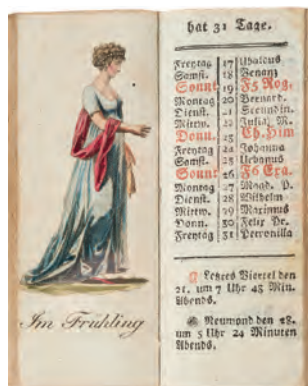 Im Frühling
hat 31 Tage.
Freytag 17 Ubaldus
Samst. 18 Venanz
Sonnt 19 F5 Rog.
Montag 20 Bernard.
Dienst. 21 Secundin.
Mittw. 22 Julia J. M.
Donn. 23 Ch. Him
Freytag 24 Johanna
Samst. 25 Urbanus
Sonnt 26 F6 Exa.
Montag 27 Magd. P.
Dienst. 28 Wilhelm
Mittw. 29 Maximus
Donn. 30 Felix Pr.
Freytag 31 Petronilla
Letztes Viertel den
21. um 7 Uhr 43 Min.
Abends.
Neumond den 28.
um 5 Uhr 24 Minuten
Abends.